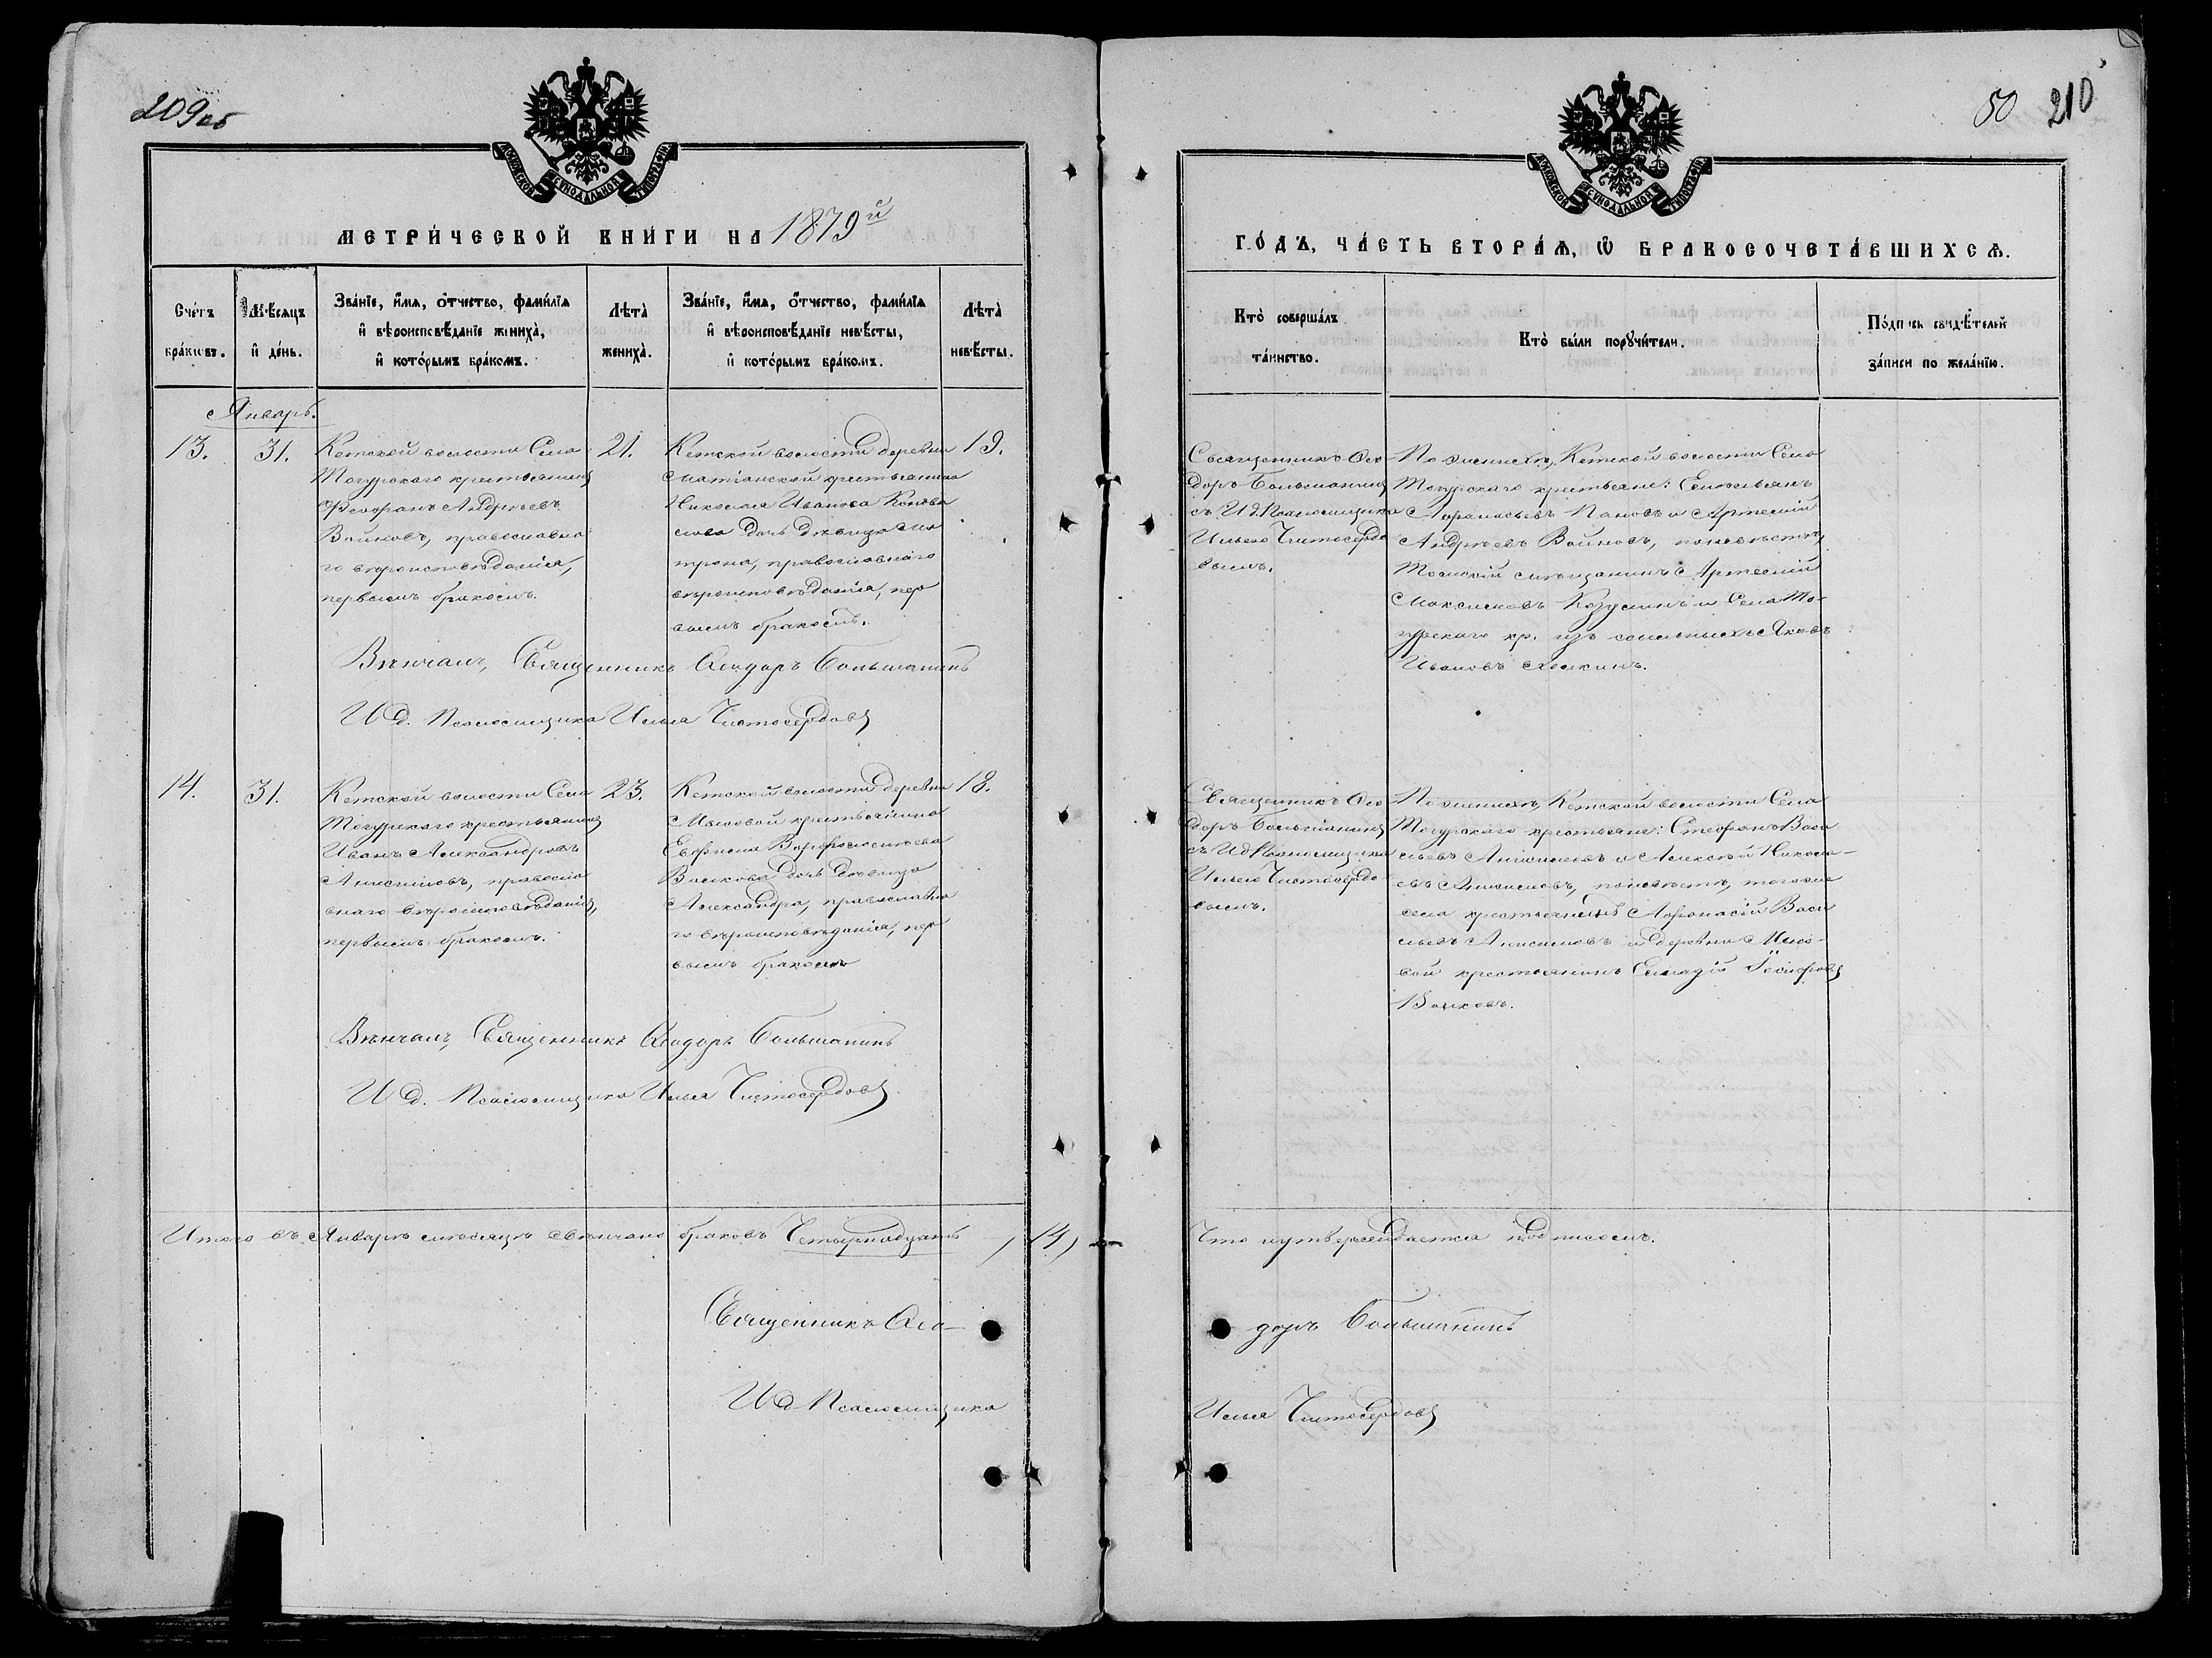 209об
МОСКОВСКОЙ СѴНОДАЛЬНОЙ ТИПОГРАФІИ
МЕТРИ́ЧЕСКОЙ КНИ́ГИ НА 1879й
Сче́тъ бра́ковъ.
Мѣ́сяцъ и де́нь.
Зва́нїе, и҆́мѧ, ѻ҆́тчество, фами́лїѧ
и҆ вѣроисповѣ́данїе жениха̀,
и҆ кото́рымъ бра́комъ.
Лѣ́та жениха̀.
Зва́нїе, и҆́мѧ, ѻ҆́тчество, фами́лїѧ
и҆ вѣроисповѣ́данїе невѣ́сты,
и҆ кото́рымъ бра́комъ.
Лѣ́та невѣ́сты.
Январь.
13.
31.
Кетской волости Села
Тогурскаго крестьянинъ
Феофанъ Андреевъ
Войновъ, православна
го вѣроисповѣданія,
первымъ бракомъ.
21.
Кетской волости деревни
крестьянина
Николая Иванова Конова
лова дочь дѣвица Ма
трона, православнаго
вѣроисповѣданія, пер
вымъ бракомъ.
19.
Вѣнчалъ, Священникъ Ѳеодоръ Большанинъ
И д. Псаломщика Илья Чистосердовъ
14.
31.
Кетской волости Села
Тогурскаго крестьянинъ
Иванъ Александровъ
Анисимовъ, правосла
внаго вѣроисповѣданія,
первымъ бракомъ.
23.
Кетской волости деревни
Мысовой крестьянина
Евфимія Варфоломѣева
Волкова дочь дѣвица
Александра, православна
го вѣроисповѣданія, пер
вымъ бракомъ
18.
Вѣнчалъ, Священникъ Ѳеодоръ Большанинъ
И д. Псаломщика Илья Чистосердовъ
Итого въ Январѣ мѣсяцѣ свѣнчано браковъ Четырнадцать (14)
Священникъ Ѳео-
И д Псаломщика
50 210
МОСКОВСКОЙ СѴНОДАЛЬНОЙ ТИПОГРАФІИ
ГО́ДЪ, ЧА́СТЬ ВТОРА́Ѧ, Ѽ БРАКОСОЧЕТА́ВШИХСѦ.
Кто̀ соверша́лъ
та́инство.
Кто̀ бы́ли порꙋчи́тели.
По́дпись свидѣ́телей
за́писи по жела́нїю.
Священникъ Ѳео
доръ Большанинъ
съ И д. Псаломщика
Ильею Чистосердо
вымъ.
По женихѣ, Кетской волости Села
Тогурскаго крестьяне: Емельянъ
Афанасьевъ Пановъ и Артемій
Андреевъ Войновъ, по невѣстѣ,
Томскій мѣщанинъ Артемій
Максимовъ Козулинъ и Села То-
гурскаго кр. изъ ссыльныхъ Яковъ
Ивановъ
Священникъ Ѳео
доръ Большанинъ
съ И д Псаломщика
Ильею Чистосердо
вымъ.
По женихѣ, Кетской волости Села
Тогурскаго крестьяне: Стефанъ Васи
льевъ Анисимовъ и Алексѣй Никола-
евъ Анисимовъ, по невѣстѣ, тогоже
села крестьянинъ Афонасій Васи
льевъ Анисимовъ и деревни Мысо-
вой крестьянинъ Іосифовъ
Волковъ.
Что и утверждается подписомъ.
доръ Большанинъ
Илья Чистосердовъ